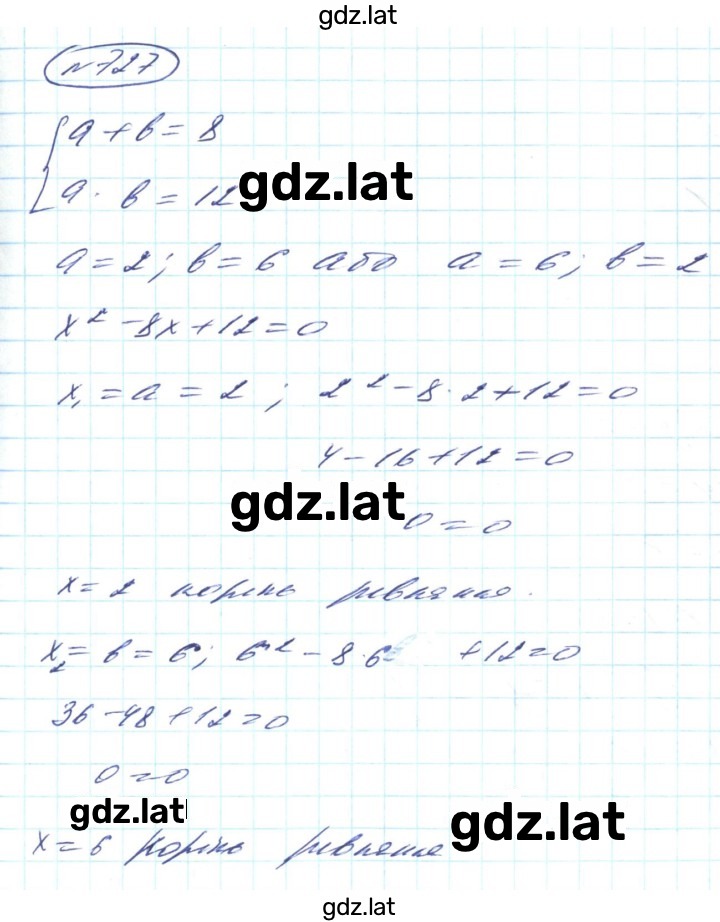 gdz.lat
№727
a + b = 8
a · b = 12
gdz.lat
a = 2; b = 6 або a = 6; b = 2
x² - 8x + 12 = 0
x₁ = a = 2 ; 2² - 8 · 2 + 12 = 0
4 - 16 + 12 = 0
gdz.lat
0 = 0
x = 2 корінь рівняння.
x₂ = b = 6; 6² - 8 · 6 + 12 = 0
36 - 48 + 12 = 0
0 = 0
gdz.lat
gdz.lat
x = 6 корінь рівняння
gdz.lat